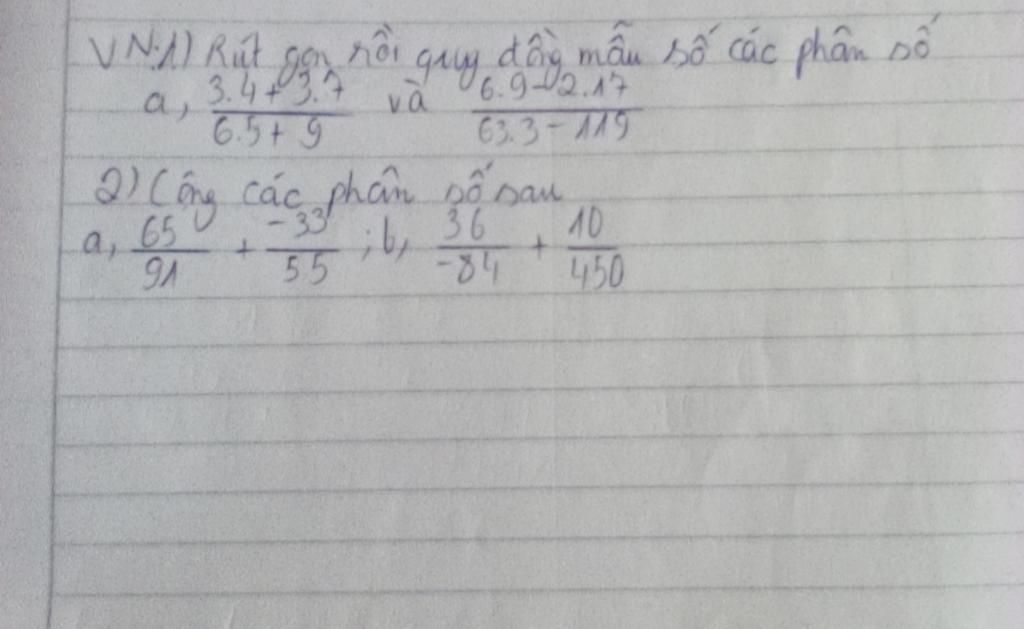 VN.1) Rút gọn rồi quy đồng mẫu số các phân số
a, \frac{3.4+3.7}{6.5+9} và \frac{6.9-2.17}{63.3-119}
2) Cộng các phân số sau
a, \frac{65}{91} + \frac{-33}{55} ; b, \frac{36}{-84} + \frac{10}{450}